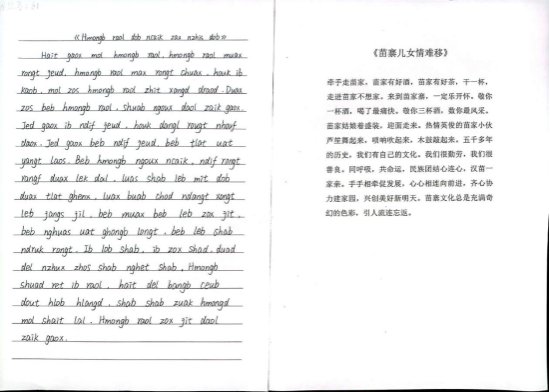 《Hmongb raol dob ncaik zax nzhic dob》
Hait gaox mol hmongb raol, hmongb raol muax
rongt jeud, hmongb raol max rongt chuax, houk ib
kaob, mol zos hmongb raol zhit xangd draod. Duax
zos beb hmongb raol, shuab ngoux daol zaik gaox.
Jed gaox ib ndif jeud, houk dangl rougt nhouf
daox. Jed gaox beb ndif jeud, beb tlat uat
yangt laos. Beb hmongb ngoux ncaik, ndif rongt
rangf duax lek dal, luas shab leb mit dob
duax tlat ghenx, luax buab chod ndangt xongt
leb jangs jil, beb muax beb leb zox jit,
beb nghuas uat ghongb longt, beb leb shab
ndruk rongt. Ib lob shab, ib zox shad, duad
del nzhux zhos shab nghet shab, Hmongb
shuad ret ib raol, hait del bangb ceub
dout hlob hlangd, shab shab zuak hmongd
mol shait lal, Hmongb raol zox jit daol
zaik gaox.
《苗寨儿女情难移》
牵手走苗家，苗家有好酒，苗家有好茶，干一杯，
走进苗家不想家。来到苗家寨，一定乐开怀。敬你
一杯酒，喝了最痛快。敬你三杯酒，数你最风采。
苗家姑娘着盛装，迎面走来。热情英俊的苗家小伙
芦笙舞起来。唢呐吹起来，木鼓敲起来。五千多年
的历史，我们有自己的文化。我们很勤劳，我们很
善良。同呼吸，共命运，民族团结心连心，汉苗一
家亲。手手相牵促发展，心心相连向前进。齐心协
力建家园，兴创美好新明天。苗寨文化总是充满奇
幻的色彩，引人流连忘返。